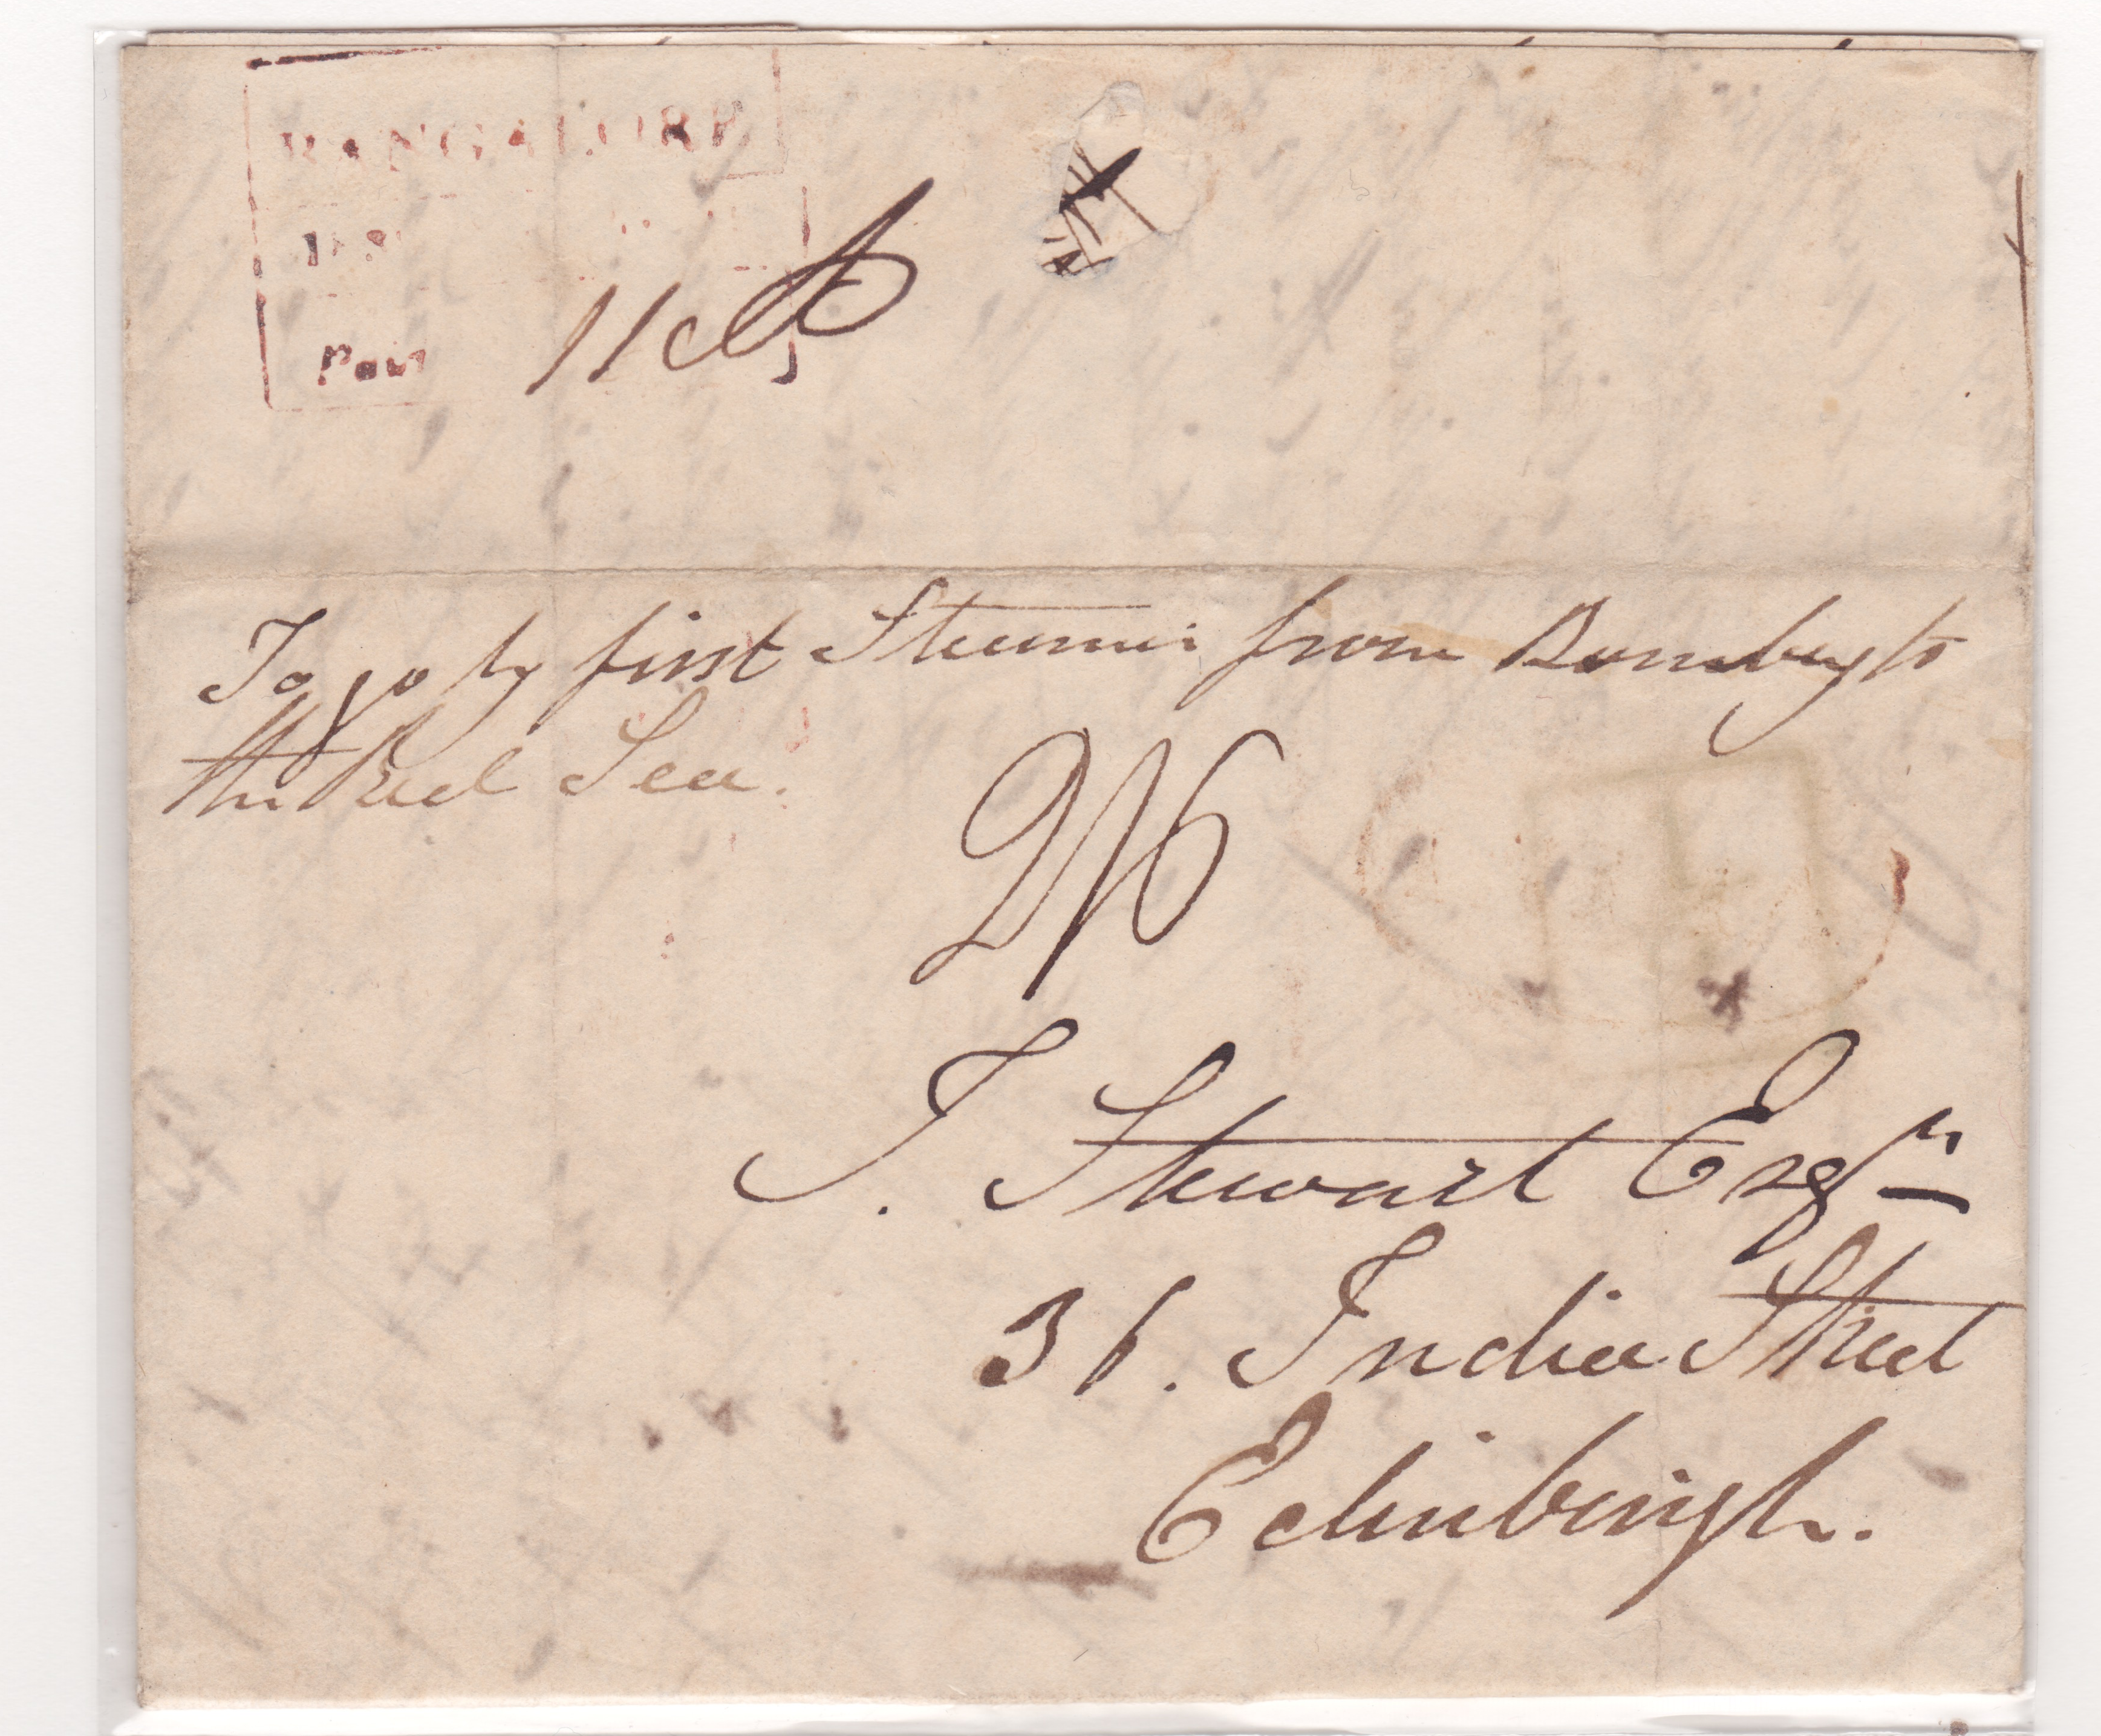 BANGALORE
Paid
11 A
To go by first Steamer from Bombay to
the Red Sea.
2/6
J. Stewart Esqr
36. India Street
Edinburgh.